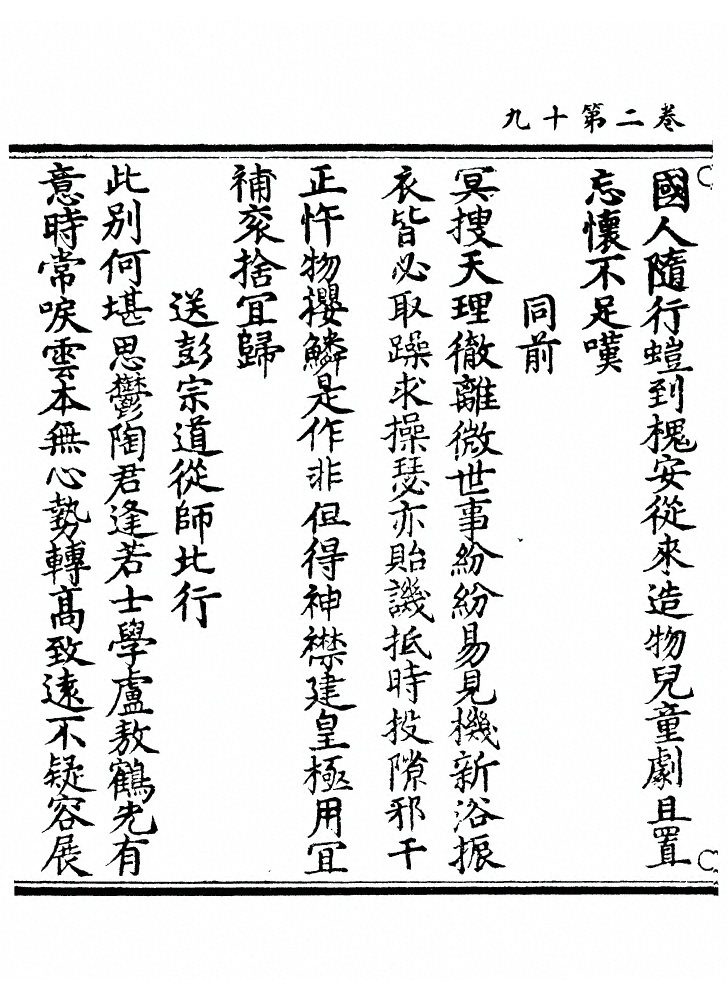 卷二第十九
國人隨行螘到槐安從來造物兒童劇且置
忘懷不足嘆
同前
冥搜天理徹離微世事紛紛易見機新浴振
衣皆必取躁求操瑟亦貽譏抵時投隙邪干
正忤物攖鱗是作非但得神襟建皇極用冝
補衮捨冝歸
送彭宗道從師北行
此别何堪思鬱陶君逢若士學盧敖鶴先有
意時常唳雲本無心勢轉髙致遠不疑容展